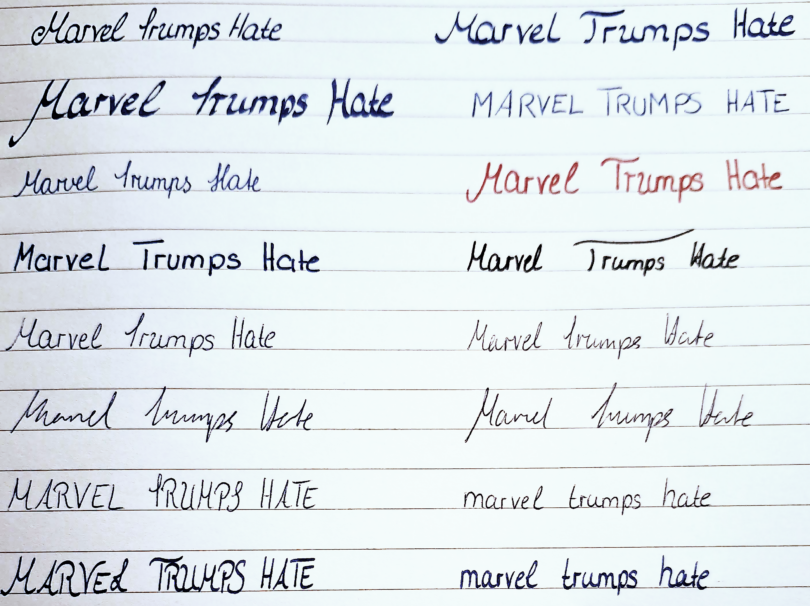 Marvel Trumps Hate Marvel Trumps Hate
Marvel Trumps Hate MARVEL TRUMPS HATE
Marvel Trumps Hate Marvel Trumps Hate
Marvel Trumps Hate Marvel Trumps Hate
Marvel Trumps Hate Marvel Trumps Hate
Marvel Trumps Hate Marvel Trumps Hate
MARVEL TRUMPS HATE marvel trumps hate
MARVEL TRUMPS HATE marvel trumps hate